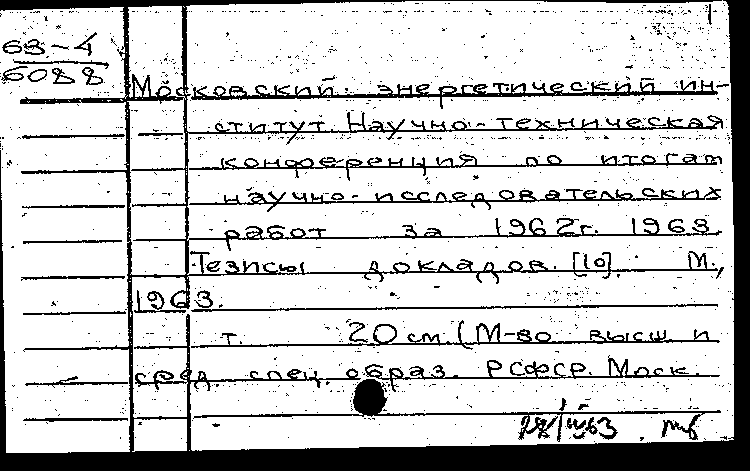 63-4
6088
Московский энергетический ин-
ститут. Научно-техническая
конференция по итогам
научно-исследовательских
работ за 1962г. 1963.
Тезисы докладов. [10]. М.,
1963.
т. 20 см. (М-во высш. и
сред. спец. образ. РСФСР. Моск.